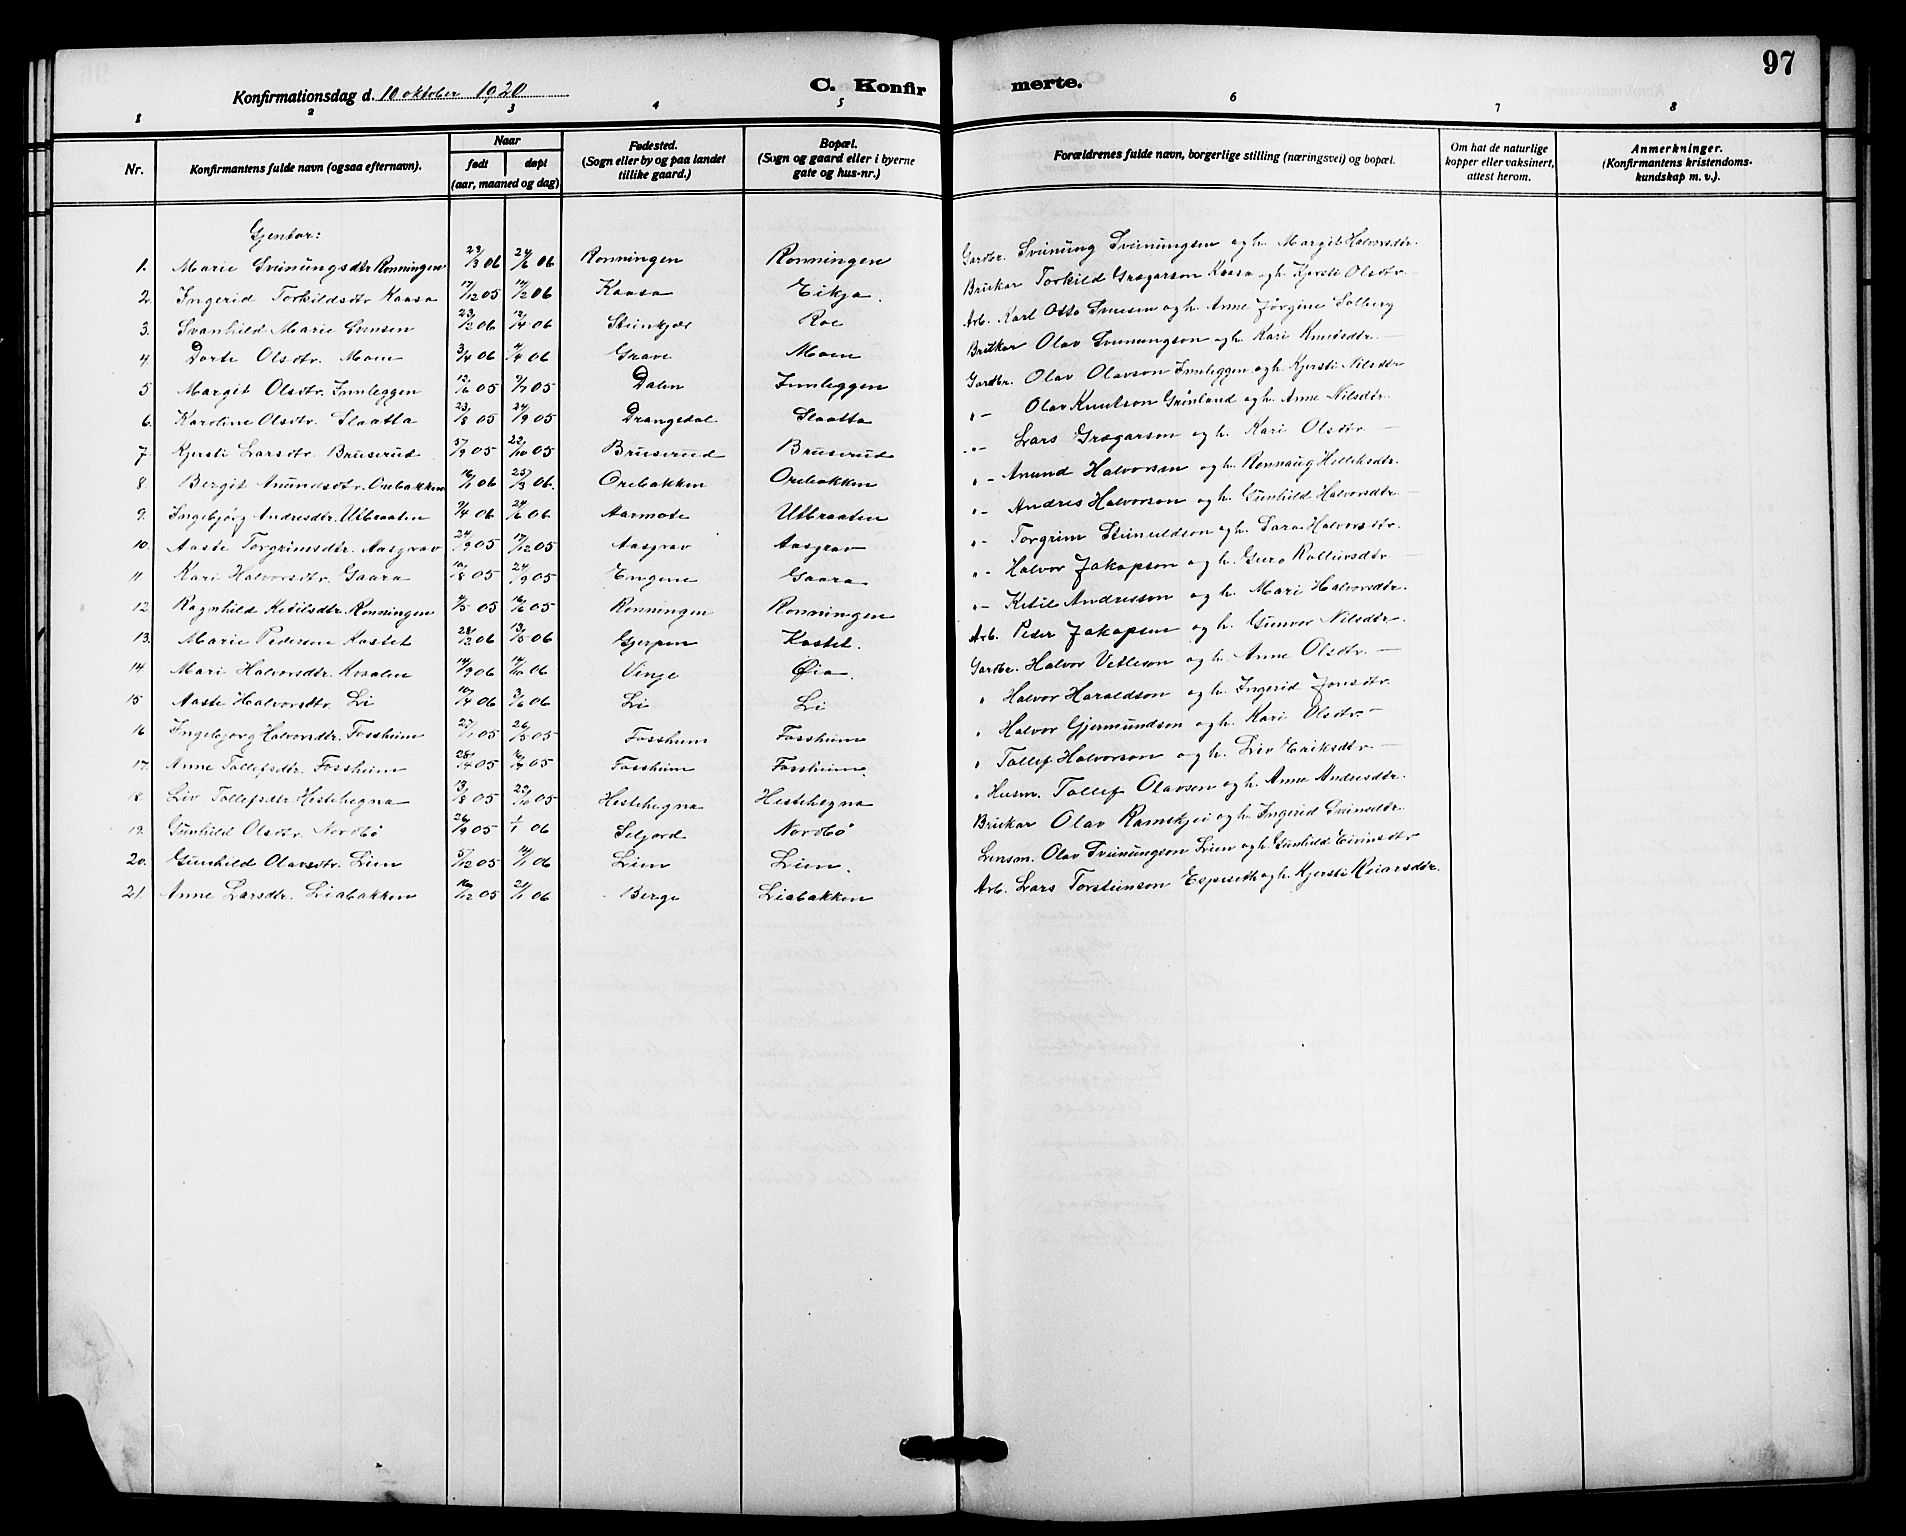 97
Konfirmationsdag d. 10 oktober 1920 C. Konfir merte.
1 2 3 4 5 6 7 8
Nr. Konfirmantens fulde navn (ogsaa efternavn). Naar født døpt (aar, maaned og dag) Fødested. (Sogn eller by og paa landet tillike gaard.) Bopæl. (Sogn og gaard eller i byerne gate og hus-nr.) Forældrenes fulde navn, borgerlige stilling (næringsvei) og bopæl. Om hat de naturlige kopper eller vaksinert, attest herom. Anmerkninger. (Konfirmantens kristendoms-kundskap m. v.).
Gjentor:
1. Marie Sveinungsdtr Rønningen 23/3 06 24/6 06 Rønningen Rønningen Gardbr. Sveinung Sveinungsen og h. Margit Halvorsdtr.
2. Ingerid Torkildsdtr Kaasa 17/12 05 /2 06 Kaasa Eikja. Brukar Torkild Grægarson Kaasa og h. Kjersti Olsdtr
3. Svanhild Marie Svensen 23/2 06 /4 06 Steinkjær Roe Arb. Karl Otto Svensen og h. Anne Jørgine Solberg
4 Dorte Olsdtr. Moen 3/4 06 /4 06 Grave Moen Brukar Olav Sveinungson og h. Kari Knudsdtr.
5 Margit Olsdtr. Innleggen 12/6 05 9/7 05 Dalen Innleggen Gardbr. Olav Olavson Innleggen og h. Kjersti Nilsdtr
6. Karoline Olsdtr. Slaatta 23/8 05 24/9 05 Drangedal Slaatta " - Olav Knutson Grønland og h. Anne Nilsdtr.
7. Kjersti Larsdtr. Bruserud /9 05 22/10 05 Bruserud Bruserud " - Lars Grægarson og h. Kari Olsdtr.
8 Bergit Anundsdtr. Orebakken 16/1 06 25/3 06. Orebakken Orebakken " - Anund Halvorson og h. Rønnaug
9. Ingebjørg Andresdtr. Utbraaten 9/4 06 24/6 06 Aarmote Utbraaten " - Andres Halvorson og h. Gunhild Halvorsdtr.
10. Aaste Torgrimsdtr. Aasgrav 24/9 05 17/12 05 Aasgrav Aasgrav " - Torgrim Steinuldson og h. Sara Halvorsdtr.
11 Kari Halvorsdtr. Gaara 10/8 05 24/9 05 Engene Gaara " - Halvor Jakopson og h. Guro Rolleivsdtr
12. Ragnhild Ketilsdtr. Rønningen /5 05 /6 05 Rønningen Rønningen " - Ketil Andresson og h. Mari Halvorsdtr.
13. Marie Pedersen Kastet 28/2 06 13/5 06 Gjerpen Kastet. Arb. Peder Jakopsen og h. Gunvor Nilsdtr.
14 Mari Halvorsdtr. 06 06 Vinje Øia. Gardbr. Halvor Vetleson og h. Anne Olsdtr.
15 Aaste Halvorsdtr. Li 10/4 06 3/6 06 Li Li " Halvor Haraldson og h. Ingerid Jonsdtr.
16 Ingebjørg Halvorsdtr. Fossheim 27/1 05 26/5 05 Fossheim Fossheim " Halvor Gjermundson og h. Kari Olsdtr.
17. Anne Tollefsdtr. Fossheim 28/4 05 05 Fossheim Fossheim. " Tollef Halvorson og h. Liv Eriksdtr.
18. Liv Tollefsdtr. Hestehegna 13/8 05 22/10 05 Hestehegna Hestehegna " Husm. Tollef Olavsen og h. Anne Andresdtr.
19. Gunhild Olsdtr. Nordbö 26/9 05 1/1 06 Seljord Nordbö Brukar Olav Ramskjei og h. Ingerid Sveinsdtr.
20. Gunhild Olavsdtr. Lien 5/12 05 14/1 06 Lien Lien. Lensm. Olav Sveinungson Lien og h. Gunhild Eivinsdtr
21. Anne Larsdtr. Liabakken /12 05 21/1 06 Berge Liabakken Arb. Lars Torsteinson Espeseth og h. Kjersti Reiarsdtr.